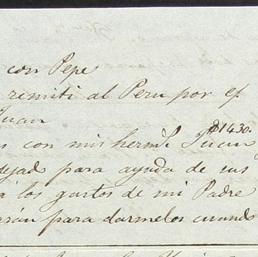 con Pepe
remiti al Peru por ef
Juan
$1430.
s con mis herms. Juan y
dejad para ayuda de sus
á los gastos de mi Padre
para darmelos cuando